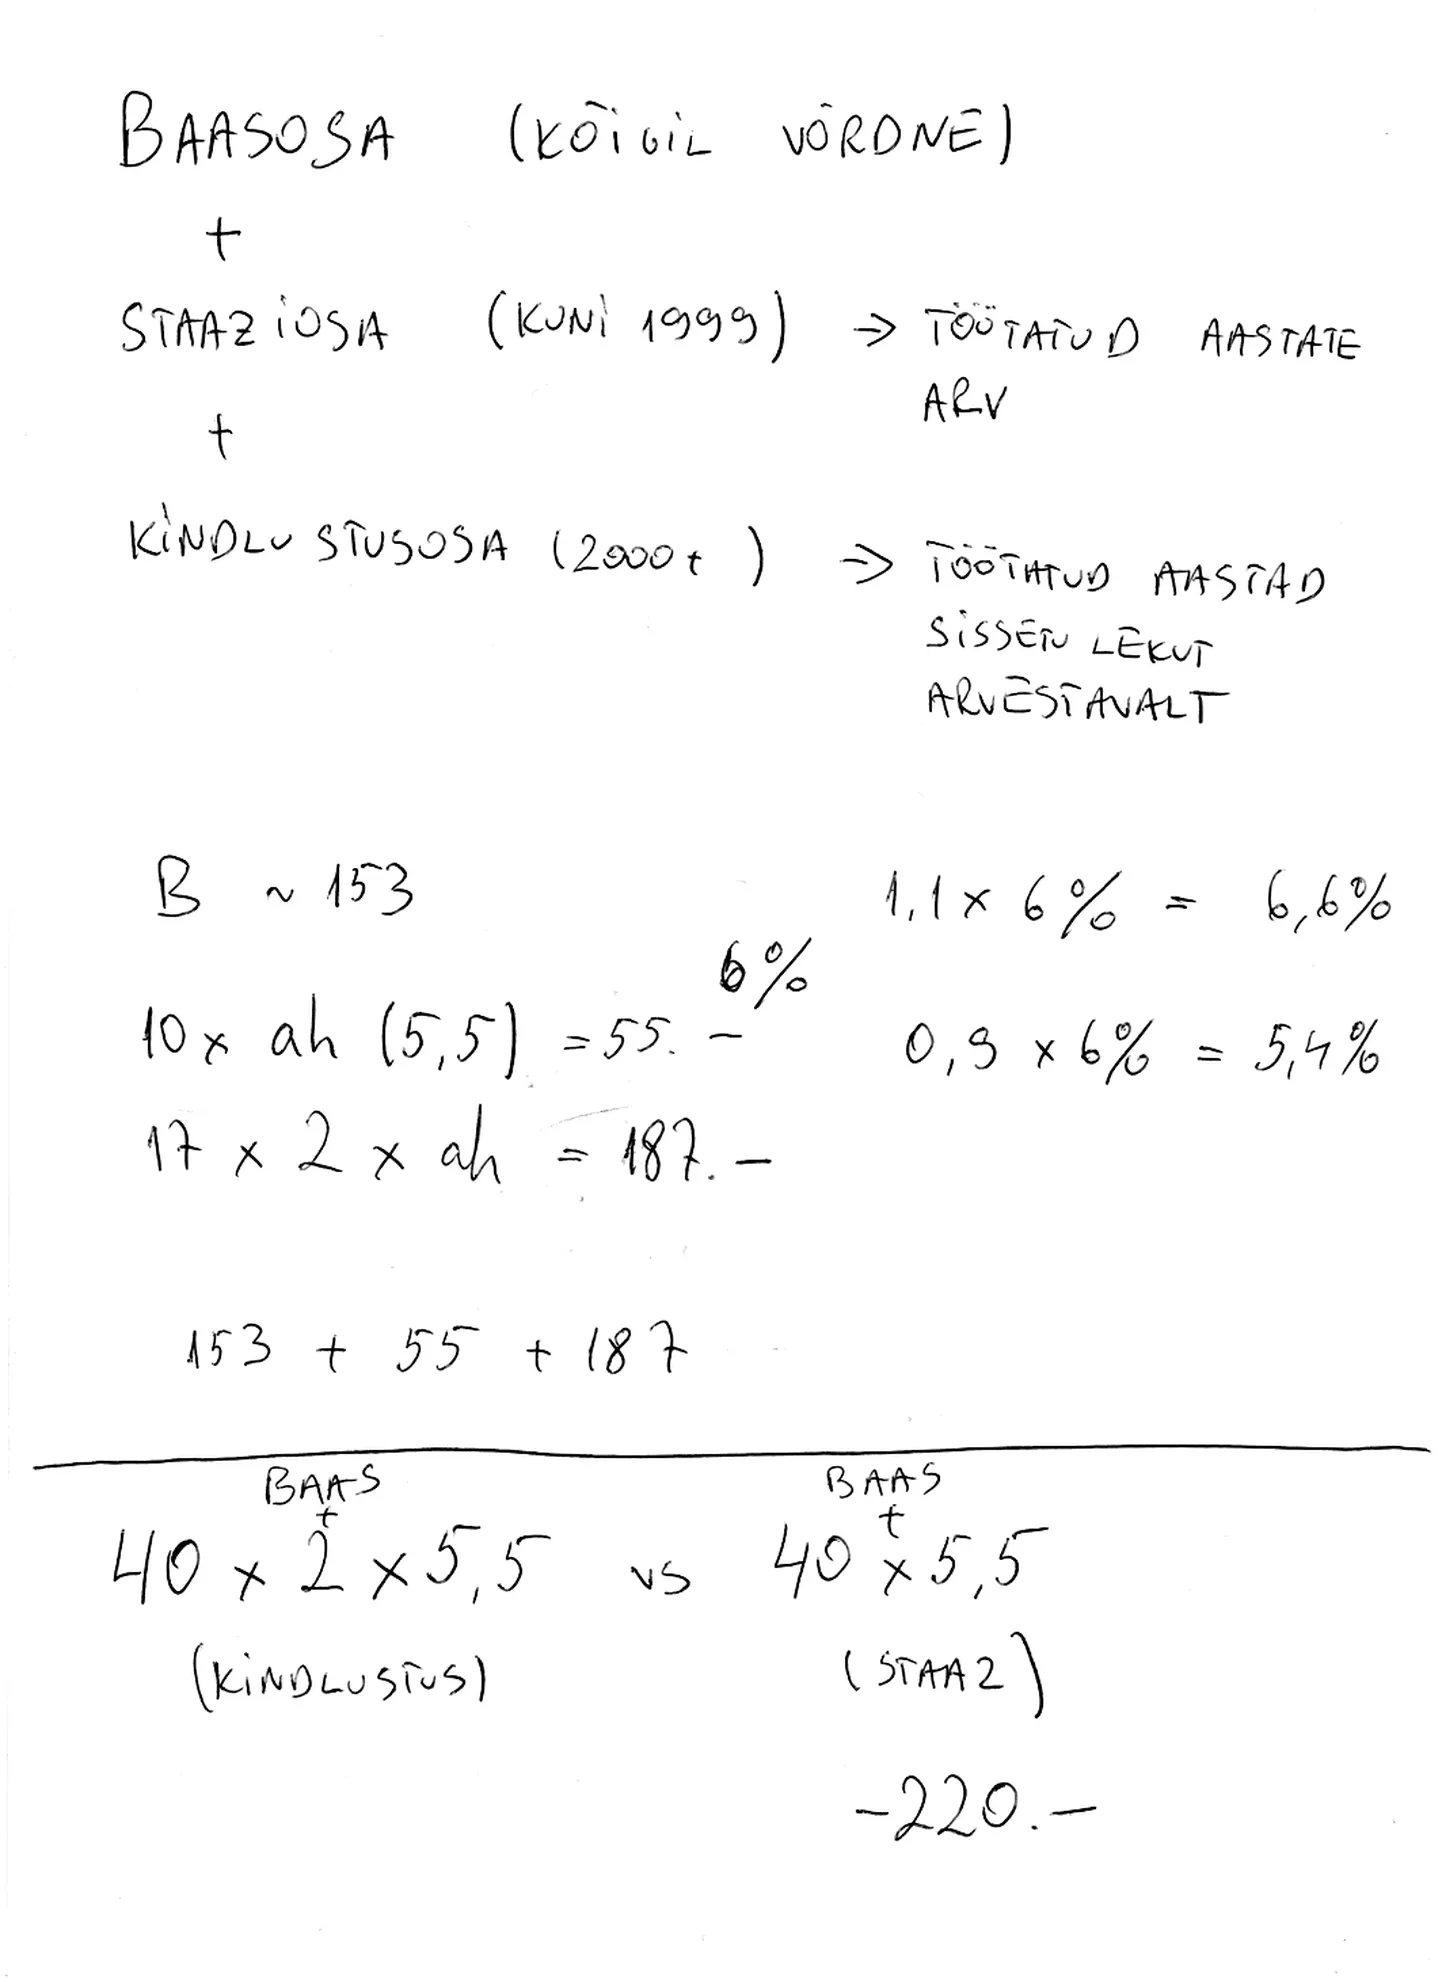 BAASOSA (KÕIGIL VÕRDNE)
+
STAAZIOSA (KUNI 1999) => TÖÖTATUD AASTATE
ARV
+
KINDLUSTUSOSA (2000+) => TÖÖTATUD AASTAD
SISSETULEKUT
ARVESTAVALT
B ~ 153
1,1 x 6% = 6,6%
6%
10 x ah (5,5) = 55.-
0,9 x 6% = 5,4%
17 x 2 x ah = 187.-
153 + 55 + 187
BAAS BAAS
+ +
40 x 2 x 5,5 vs 40 x 5,5
(KINDLUSTUS) (STAAZ)
-220.-